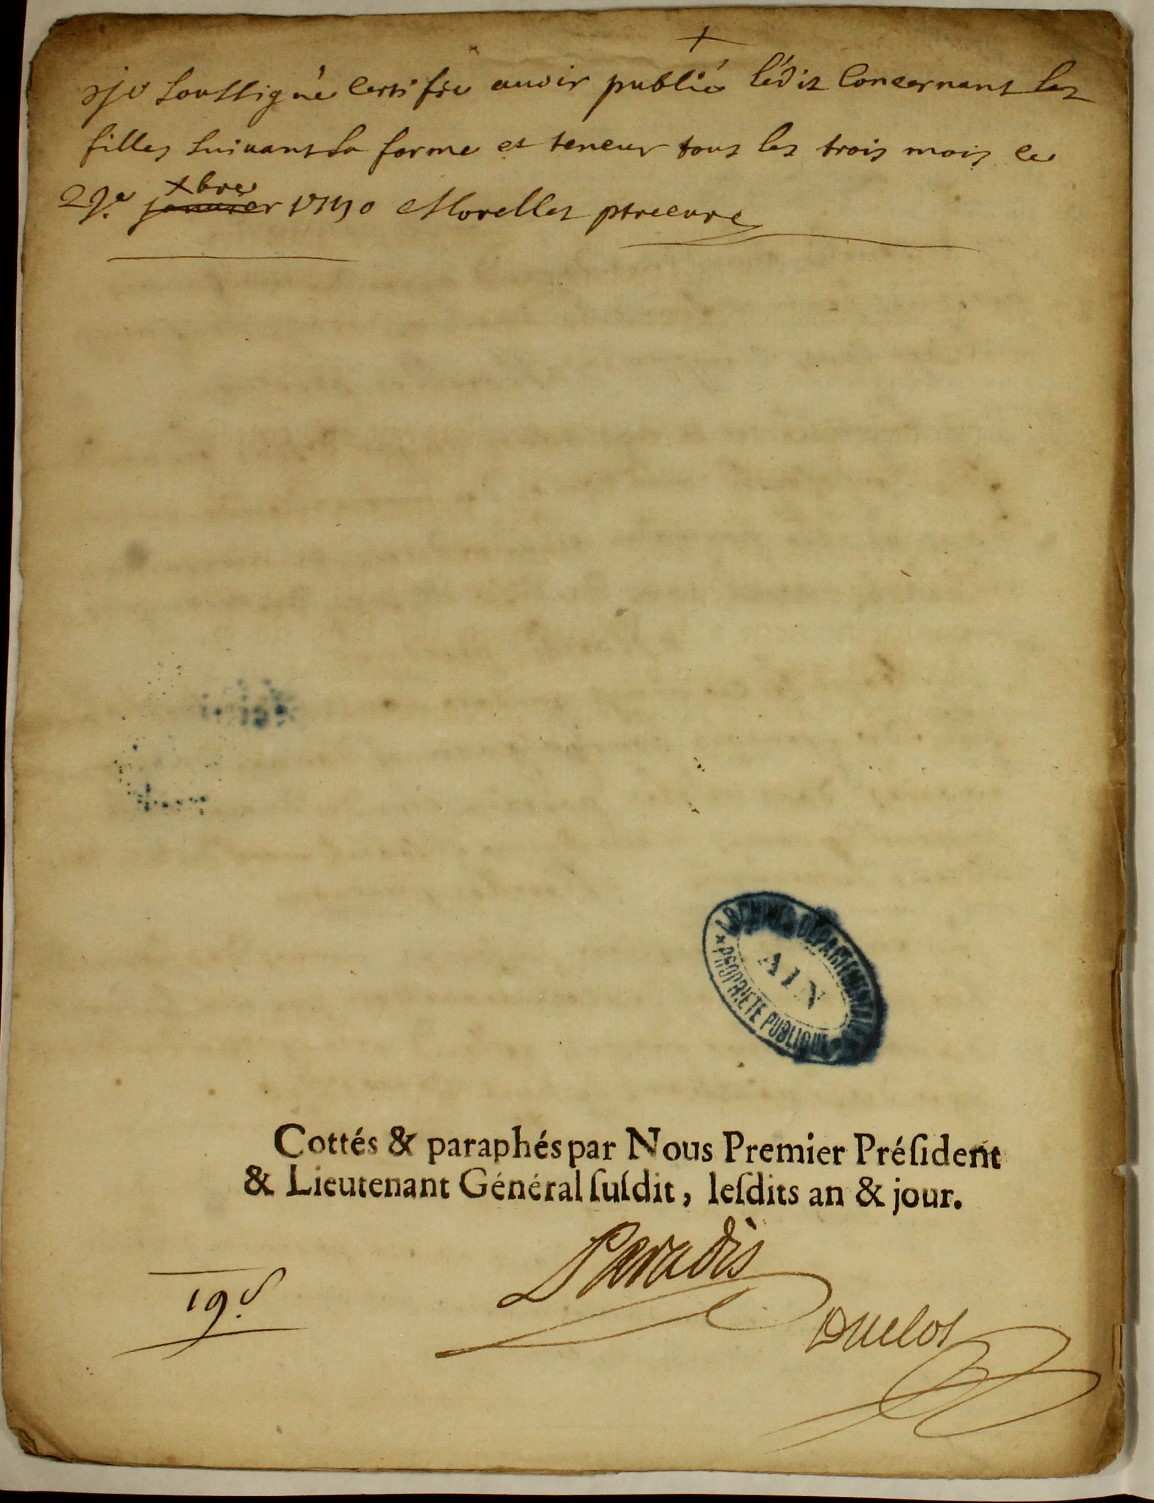 +
je soussigné certifie avoir publié lédit concernant les
filles suivant sa forme et teneur tous les trois mois ce
29.e janvier xbre Morellet ptre curé
ARCHIVES DEPARTEMENTALES
AIN
* PROPRIETE PUBLIQUE
Cottés & paraphés par Nous Premier Préſident
& Lieutenant Général ſuſdit, leſdits an & jour.
Paradis
19.
Duclos